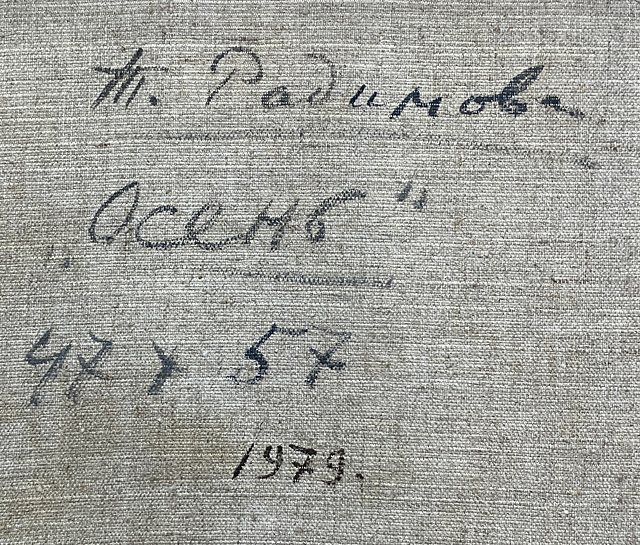 Т. Радимова
„Осень"
47 x 57
1979.